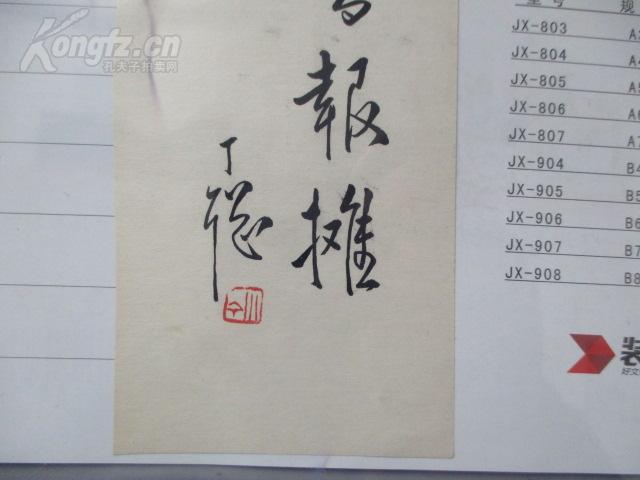 Kongfz.cn
孔夫子拍卖网
報攤
丁聪
型号 规
JX-803 A
JX-804 A
JX-805 A5
JX-806 A6
JX-807 A7
JX-904 B4
JX-905 B5
JX-906 B6
JX-907 B7
JX-908 B8
装
好文